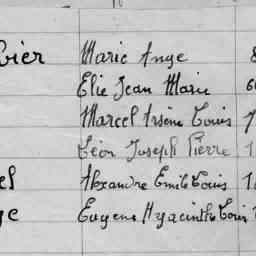 bier Marie Ange 8
Elie Jean Marie 6
Marcel Arsène Louis
Léon Joseph Pierre 1
el Alexandre Emile Louis 1
ge Eugene Hyacinthe Louis